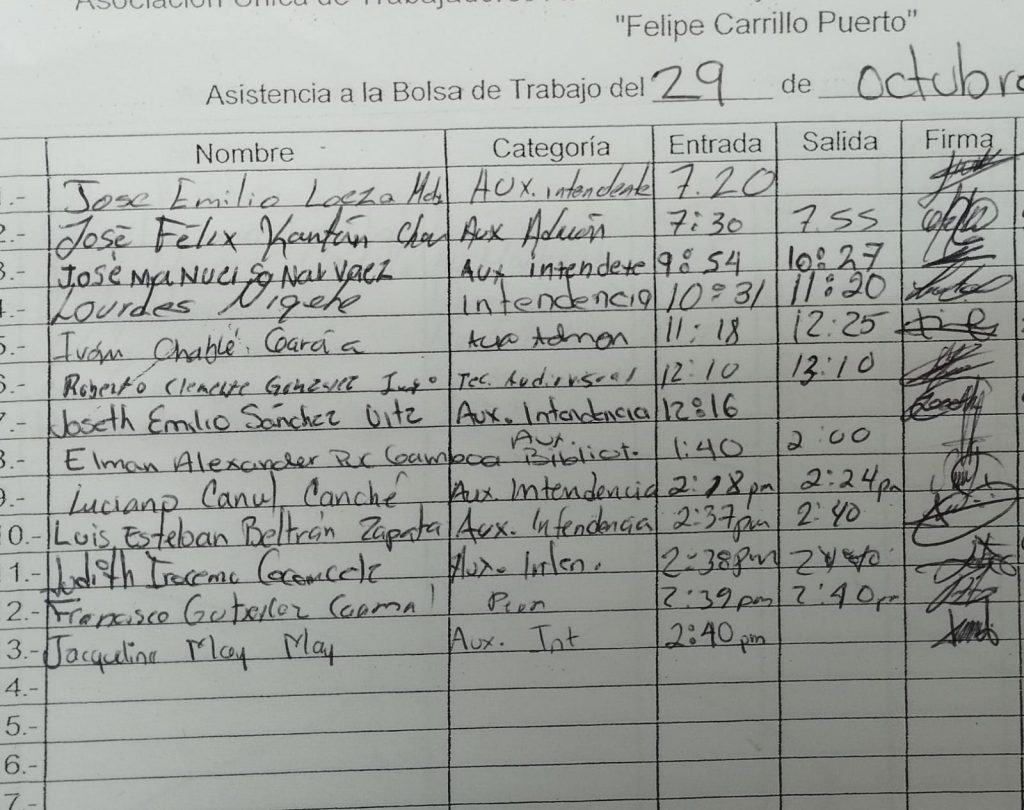 Asociación Única de Trabajadores
"Felipe Carrillo Puerto"
Asistencia a la Bolsa de Trabajo del 29 de octubre
Nombre Categoría Entrada Salida Firma
1.- Jose Emilio Loeza AUX. intendente 7.20
2.- José Félix Kantún Chan Aux Admón 7:30 7.55
3.- José Manuel Narvaez AUX intendete 9:54 10:27
4.- Lourdes Intendencia 10:31 11:20
5.- Iván Chablé García Aux Admon 11:18 12:25
6.- Roberto Clemente Tec. Audiovisual 12:10 13:10
7.- Joseth Emilio Sánchez Uitz Aux. Intendencia 12:16
8.- Elman Alexander Puc Gamboa Aux. Bibliot. 1:40 2:00
9.- Luciano Canul Canché Aux. Intendencia 2:18pm 2:24pm
10.- Luis Esteban Beltrán Zapata Aux. Intendencia 2:37pm 2:40
11.- Judith Aux. Inten. 2:38pm
12.- Francisco 2:39pm 2:40pm
13.- Jacqueline May May Aux. Int 2:40pm
4.-
5.-
6.-
7.-